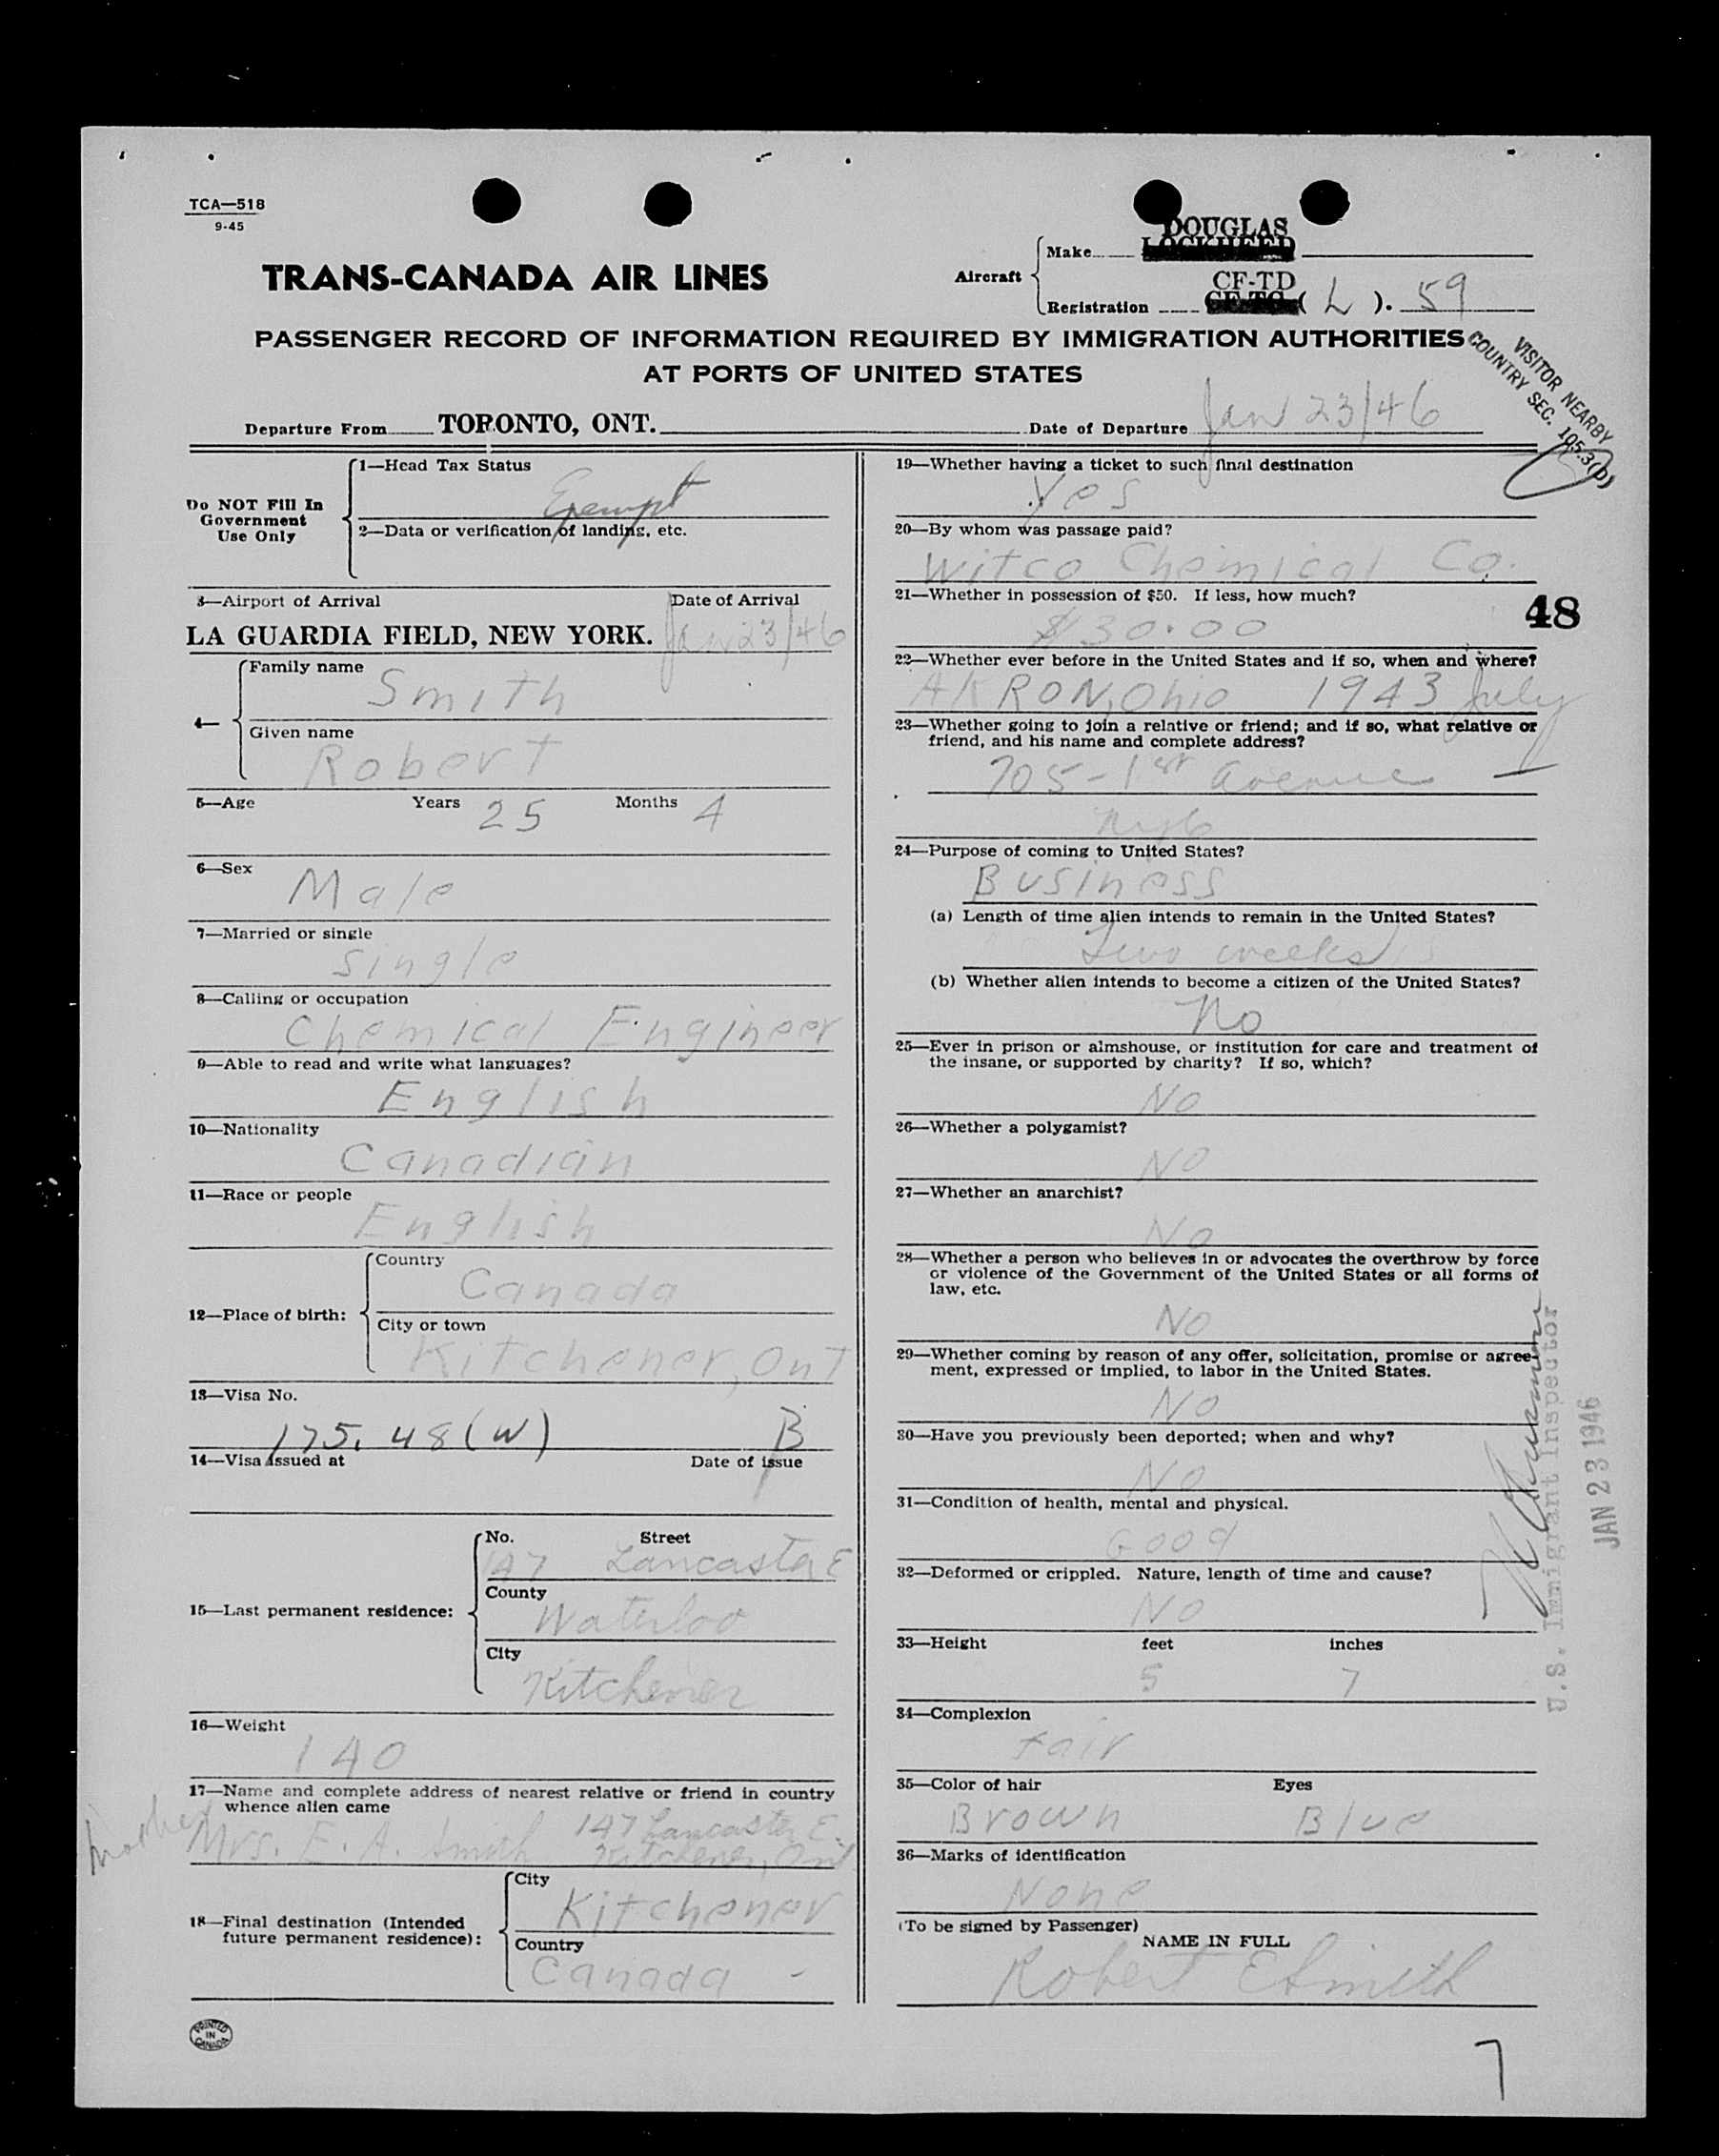 TCA—518
9-45
TRANS-CANADA AIR LINES
Aircraft
Make
DOUGLAS
LOCKHEED
Registration
CF-TD
CF-TC ( L ). 59
PASSENGER RECORD OF INFORMATION REQUIRED BY IMMIGRATION AUTHORITIES
AT PORTS OF UNITED STATES
VISITOR NEARBY
COUNTRY SEC. 105.3(b)
Departure From TORONTO, ONT.
Date of Departure Jan 23/46
Do NOT Fill In
Government
Use Only
1—Head Tax Status
Exempt
2—Data or verification of landing, etc.
3—Airport of Arrival Date of Arrival
LA GUARDIA FIELD, NEW YORK. Jan 23/46
4—
Family name
Smith
Given name
Robert
5—Age Years 25 Months 4
6—Sex
Male
7—Married or single
Single
8—Calling or occupation
Chemical Engineer
9—Able to read and write what languages?
English
10—Nationality
Canadian
11—Race or people
English
12—Place of birth:
Country
Canada
City or town
Kitchener, Ont
13—Visa No.
175.48(W) B
14—Visa issued at Date of issue
15—Last permanent residence:
No. Street
147 Lancaster E
County
Waterloo
City
Kitchener
16—Weight
140
17—Name and complete address of nearest relative or friend in country
whence alien came
Mother Mrs. E. A. Smith 147 Lancaster E.
Kitchener, Ont
18—Final destination (Intended
future permanent residence):
City
Kitchener
Country
Canada -
PRINTED
IN
CANADA
19—Whether having a ticket to such final destination
Yes
20—By whom was passage paid?
Witco Chemical Co.
21—Whether in possession of $50. If less, how much?
$30.00
48
22—Whether ever before in the United States and if so, when and where?
AKRON, Ohio 1943 July
23—Whether going to join a relative or friend; and if so, what relative or
friend, and his name and complete address?
705-1st Avenue
24—Purpose of coming to United States?
Business
(a) Length of time alien intends to remain in the United States?
Two weeks
(b) Whether alien intends to become a citizen of the United States?
No
25—Ever in prison or almshouse, or institution for care and treatment of
the insane, or supported by charity? If so, which?
No
26—Whether a polygamist?
No
27—Whether an anarchist?
No
28—Whether a person who believes in or advocates the overthrow by force
or violence of the Government of the United States or all forms of
law, etc.
No
29—Whether coming by reason of any offer, solicitation, promise or agree-
ment, expressed or implied, to labor in the United States.
No
30—Have you previously been deported; when and why?
No
31—Condition of health, mental and physical.
Good
32—Deformed or crippled. Nature, length of time and cause?
No
33—Height feet inches
5 7
34—Complexion
Fair
35—Color of hair Eyes
Brown Blue
36—Marks of identification
None
(To be signed by Passenger)
NAME IN FULL
Robert E Smith
U.S. Immigrant Inspector
JAN 23 1946
7